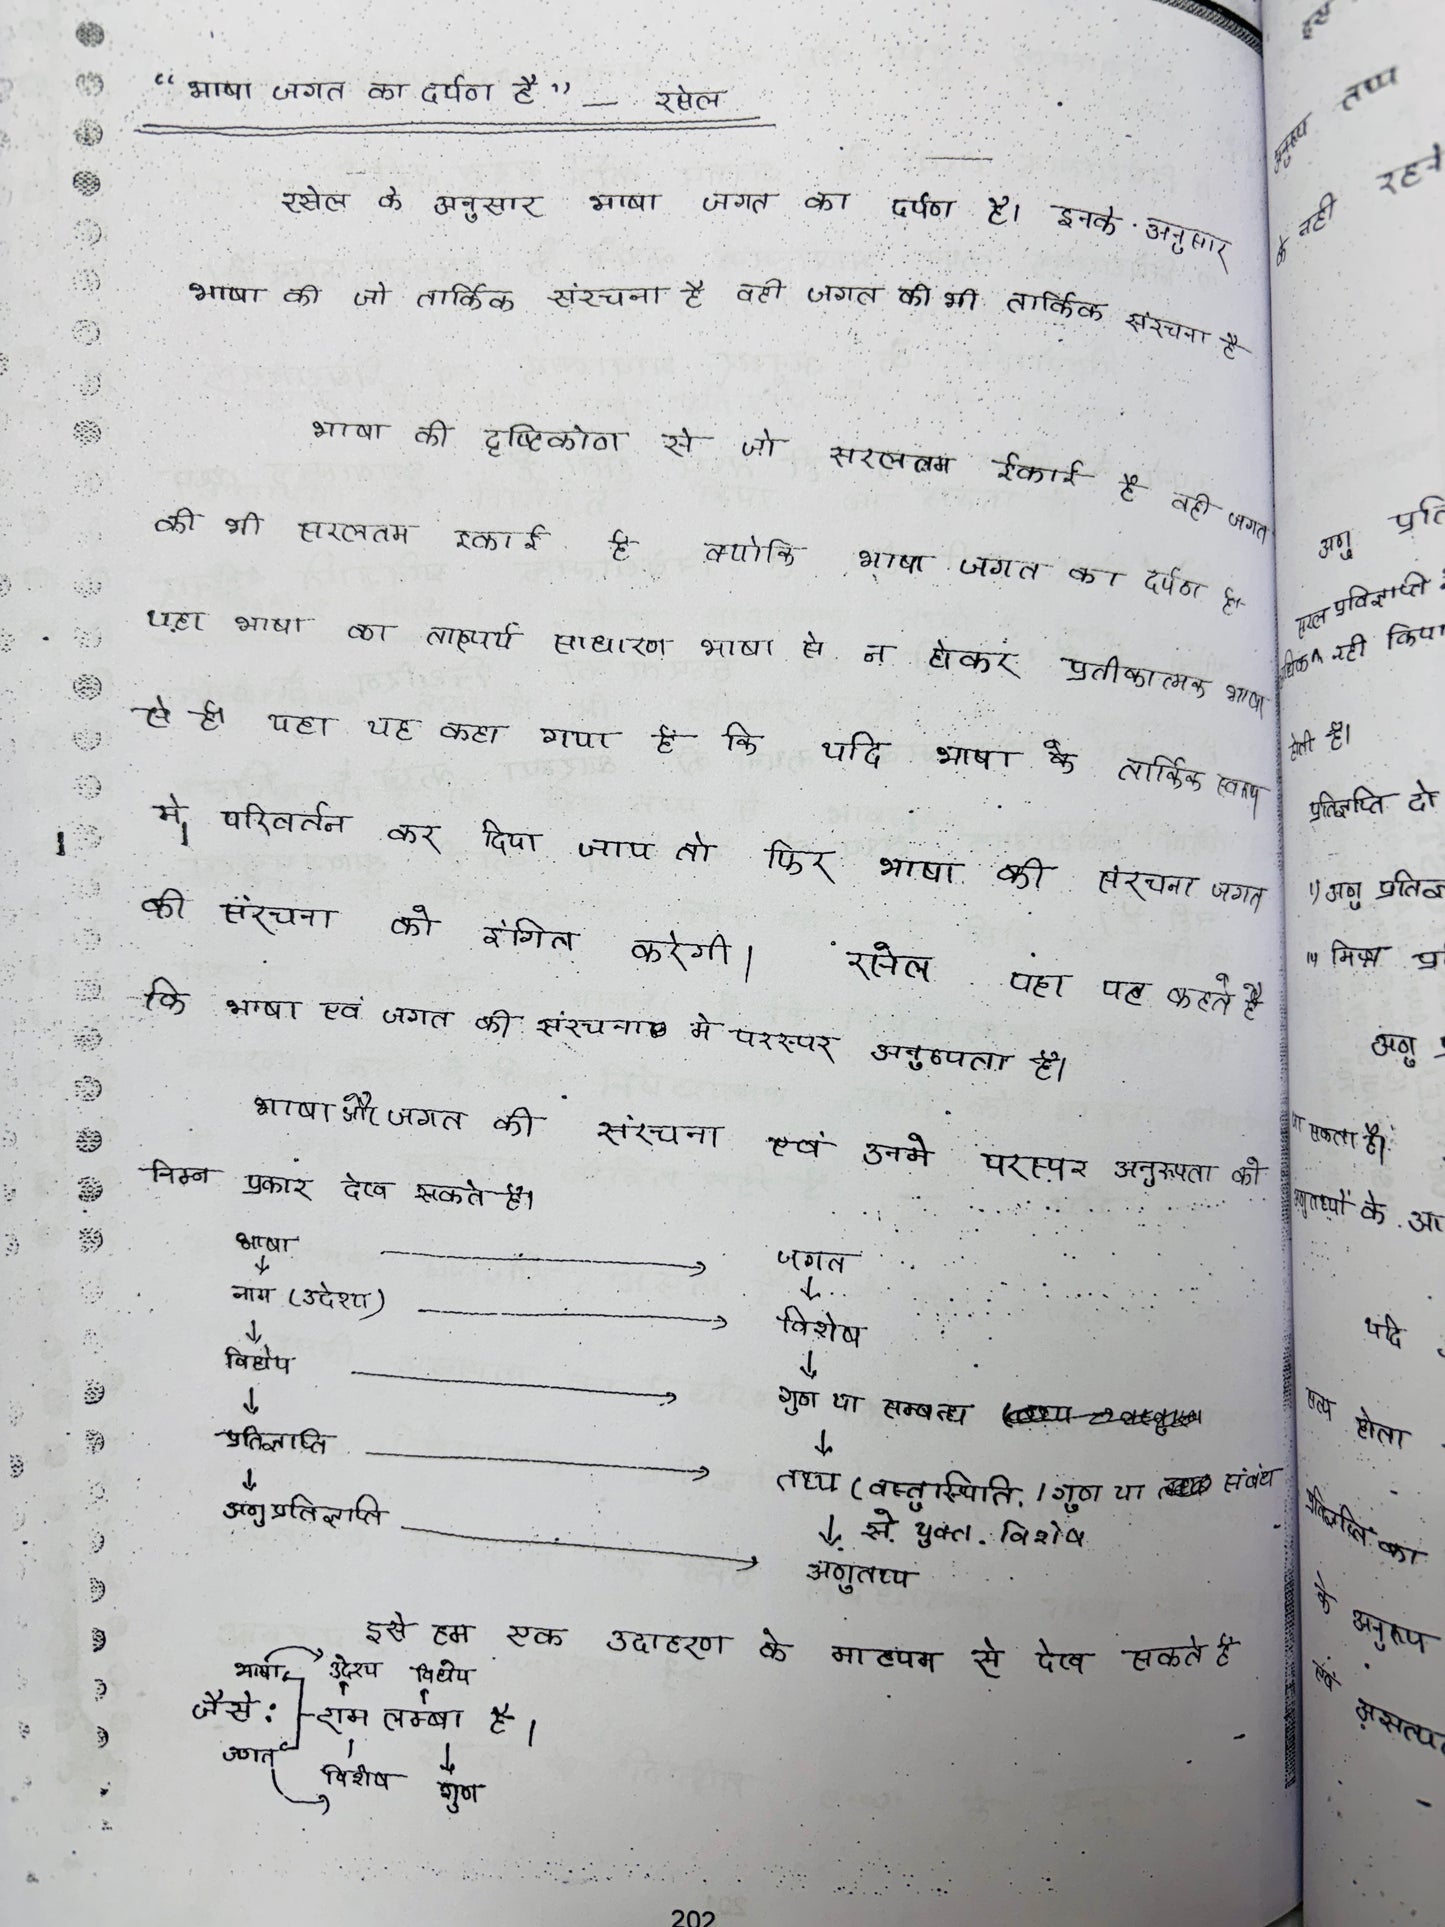 “भाषा जगत का दर्पण है” — रसेल
रसेल के अनुसार भाषा जगत का दर्पण है। इनके अनुसार
भाषा की जो तार्किक संरचना है वही जगत की भी तार्किक संरचना है
भाषा की दृष्टिकोण से जो सरलतम ईकाई है वही जगत
की भी सरलतम इकाई है क्योकि भाषा जगत का दर्पण है।
यहा भाषा का तात्पर्य साधारण भाषा से न होकर प्रतीकात्मक भाषा
से है। यहा यह कहा गया है कि यदि भाषा के तार्किक स्वरूप
मे परिवर्तन कर दिया जाय तो फिर भाषा की संरचना जगत
की संरचना को इंगित करेगी। रसेल यहा यह कहते है
कि भाषा एवं जगत की संरचना मे परस्पर अनुरूपता है।
भाषा और जगत की संरचना एवं उनमे परस्पर अनुरूपता को
निम्न प्रकार देख सकते है।
भाषा → जगत
↓ ↓
नाम (उदेश्य) → विशेष
↓ ↓
विधेय → गुण या सम्बन्ध
↓ ↓
प्रतिज्ञाप्ति → तथ्य (वस्तुस्थिति. / गुण या संबंध
↓ ↓ से युक्त. विशेष
अणु प्रतिज्ञाप्ति → अणुतथ्य
इसे हम एक उदाहरण के माध्यम से देख सकते है
भाषा उदेश्य विधेय
जैसे: राम लम्बा है।
जगत विशेष गुण
202
तथ्य
अनुरूप
के नही रहने
अणु
सरल प्रतिज्ञाप्ति
नही किया
होती है।
प्रतिज्ञप्ति दो
1) अणु
मिश्र
अणु
सकता है।
के. आ
यदि
सत्य होता
प्रतिज्ञप्ति का
के अनुरूप
एवं